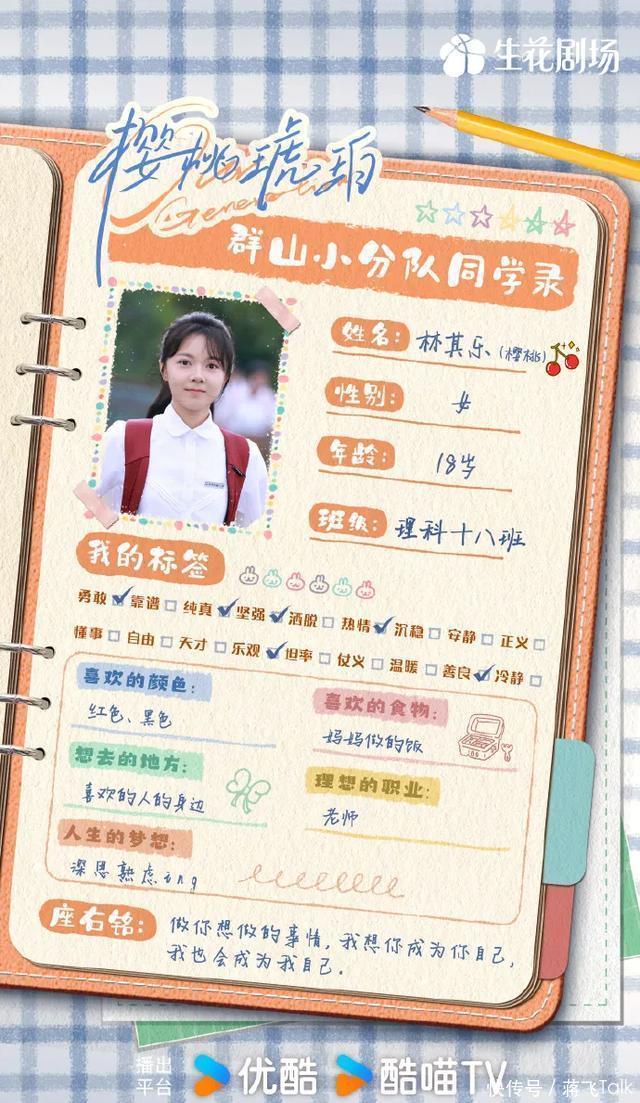 生花剧场
樱桃琥珀
Generation
群山小分队同学录
姓名: 林其乐(樱桃)
性别: 女
年龄: 18岁
班级: 理科十八班
我的标签
勇敢 靠谱 纯真 坚强 洒脱 热情 沉稳 安静 正义
懂事 自由 天才 乐观 坦率 仗义 温暖 善良 冷静
喜欢的颜色:
红色、黑色
喜欢的食物:
妈妈做的饭
想去的地方:
喜欢的人的身边
理想的职业:
老师
人生的梦想:
深思熟虑ing
座右铭: 做你想做的事情,我想你成为你自己,
我也会成为我自己.
播出
平台
优酷
酷喵TV
快传号/蒋飞Talk